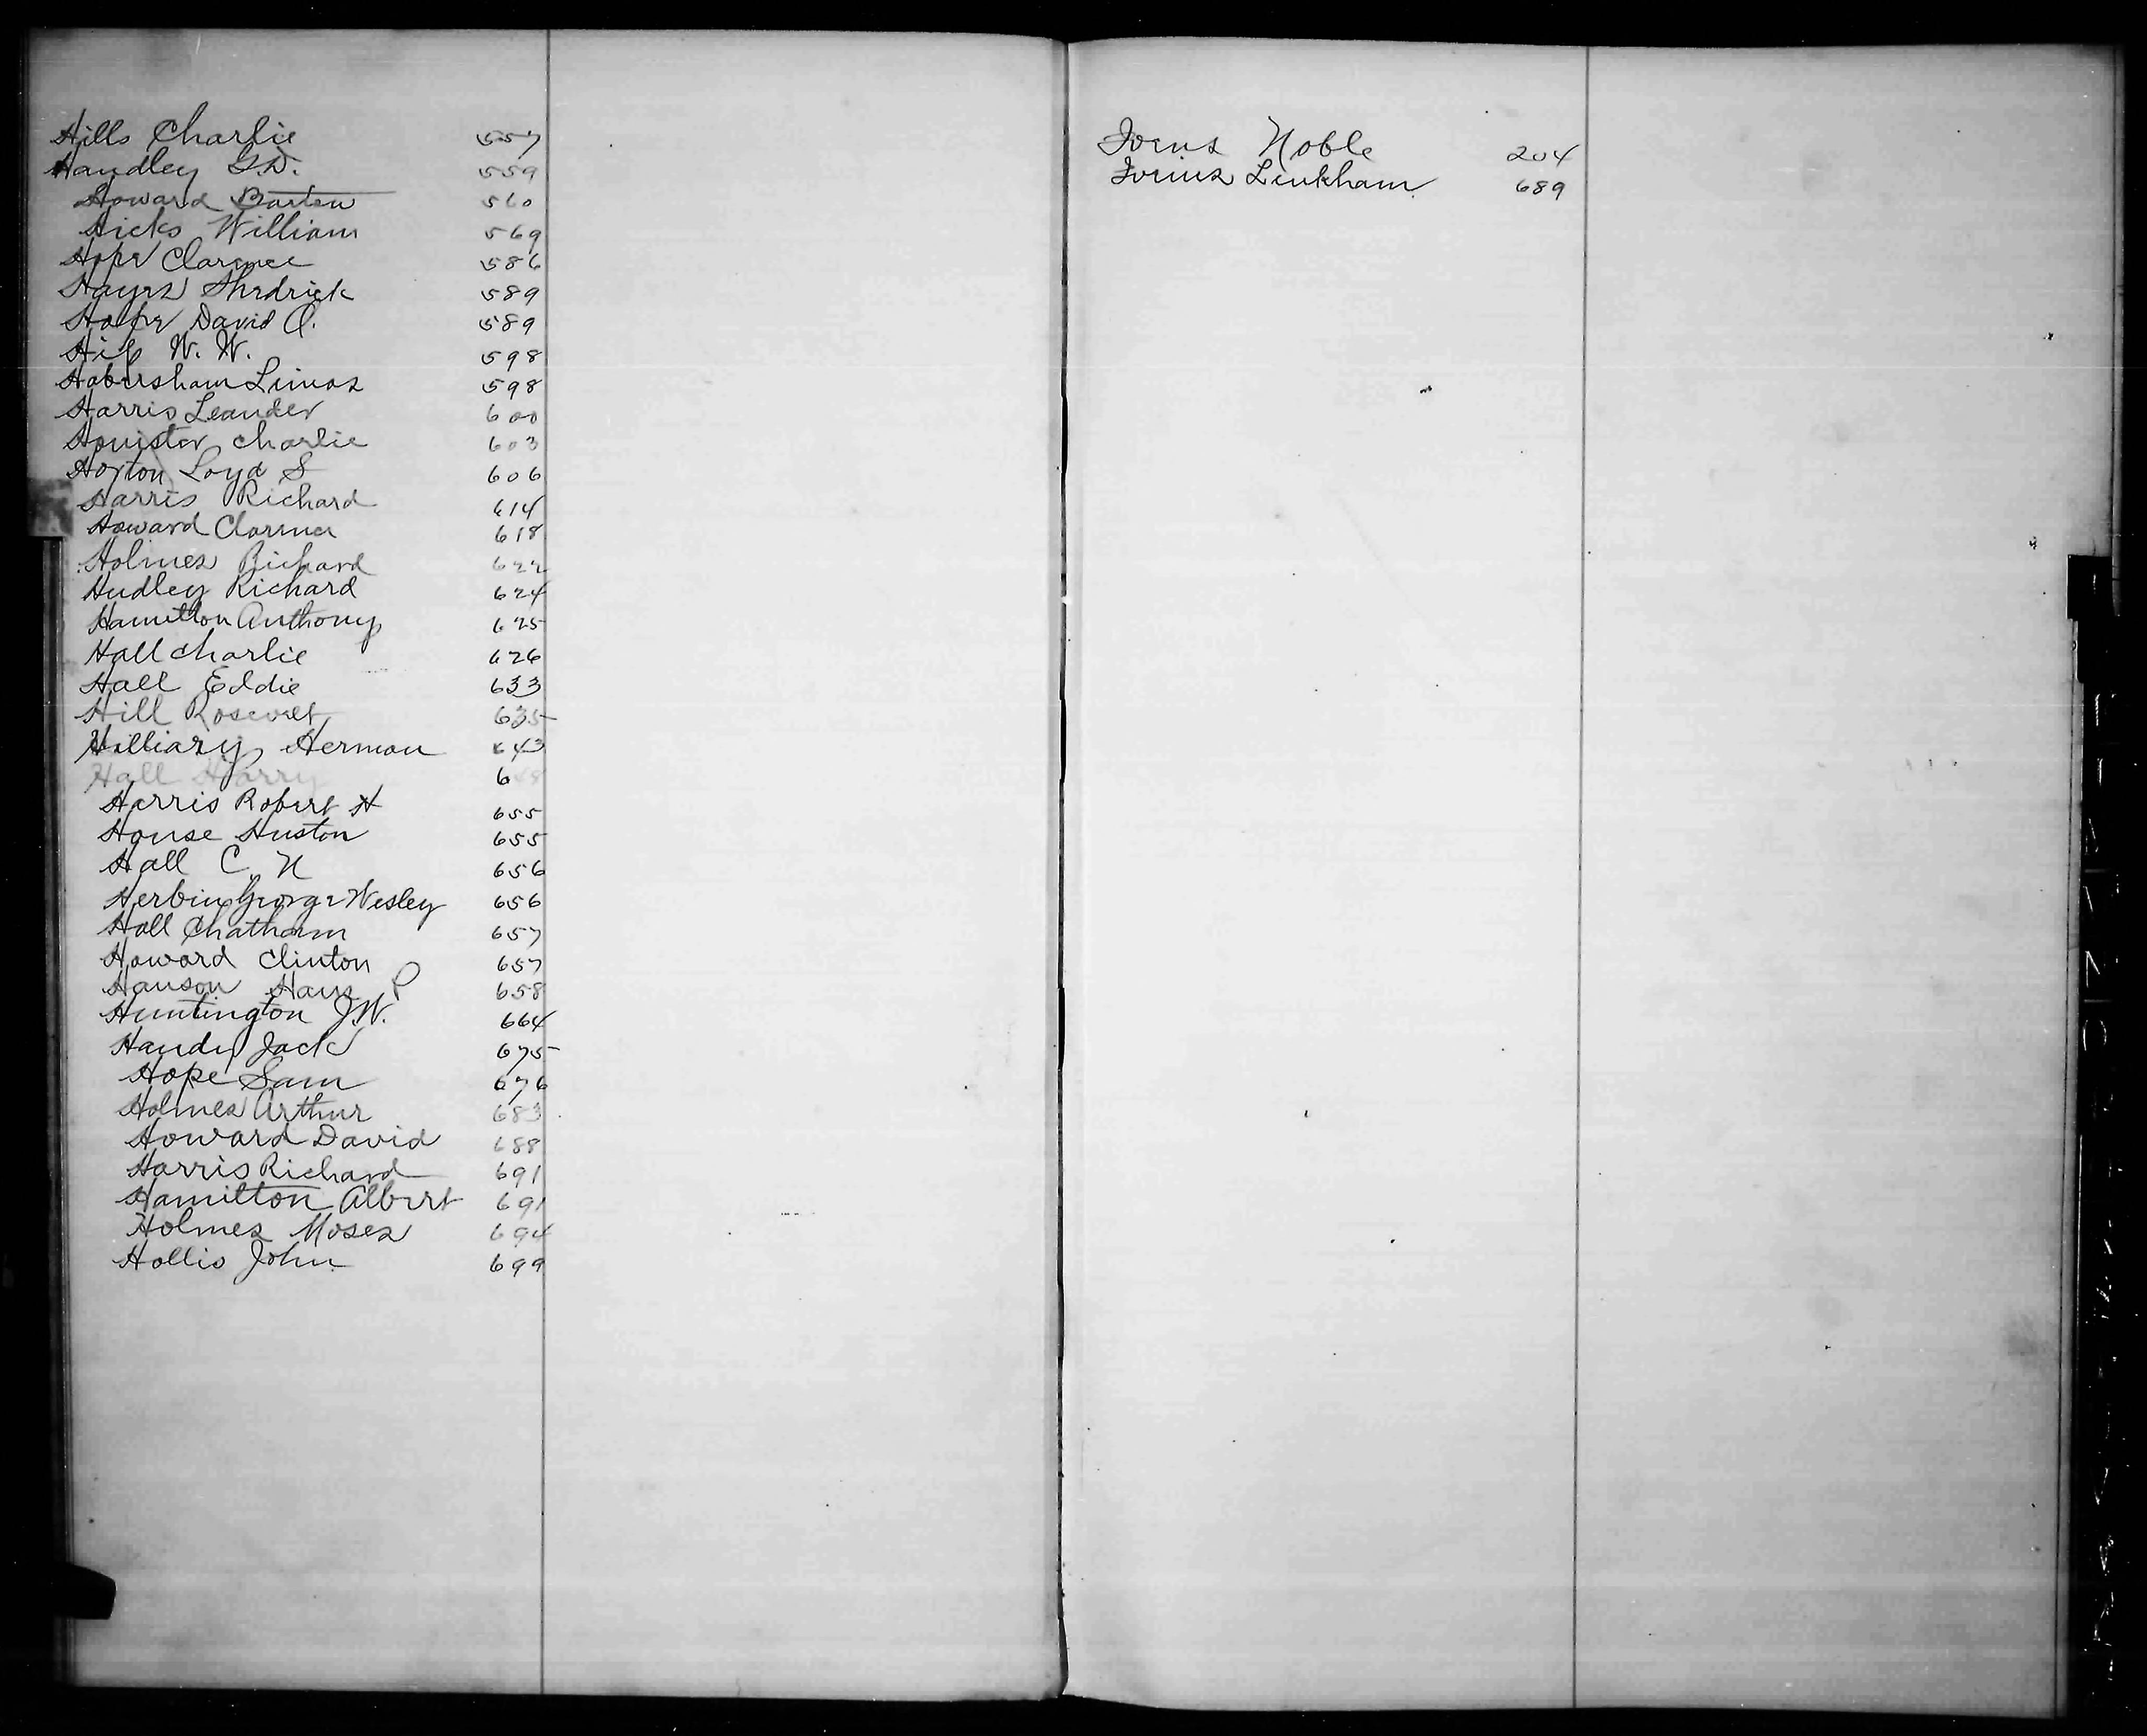 Hills Charlie 557
Handley G.D. 559
Howard Barton 560
Hicks William 569
Hope Clarence 586
Hayes Shedrick 589
Hofer David O. 589
Hip W. W. 598
Habersham Limas 598
Harris Leander 600
Honister Charlie 603
Horton Loyd S 606
Harris Richard 614
Howard Clarence 618
Holmes Richard 622
Hudley Richard 624
Hamilton Anthony 625
Hall Charlie 626
Hall Eddie 633
Hill Rosevelt 635
Hilliary Herman 643
Hall Harry 648
Harris Robert H 655
House Huston 655
Hall C. N 656
Herbin George Wesley 656
Hall Chatham 657
Howard Clinton 657
Hanson Hans P 658
Huntington J.W. 664
Handy Jack 675
Hope Sam 676
Holmes Arthur 683
Howard David 688
Harris Richard 691
Hamilton Albert 691
Holmes Moses 694
Hollis John 699
Noble 204
Linkham 689